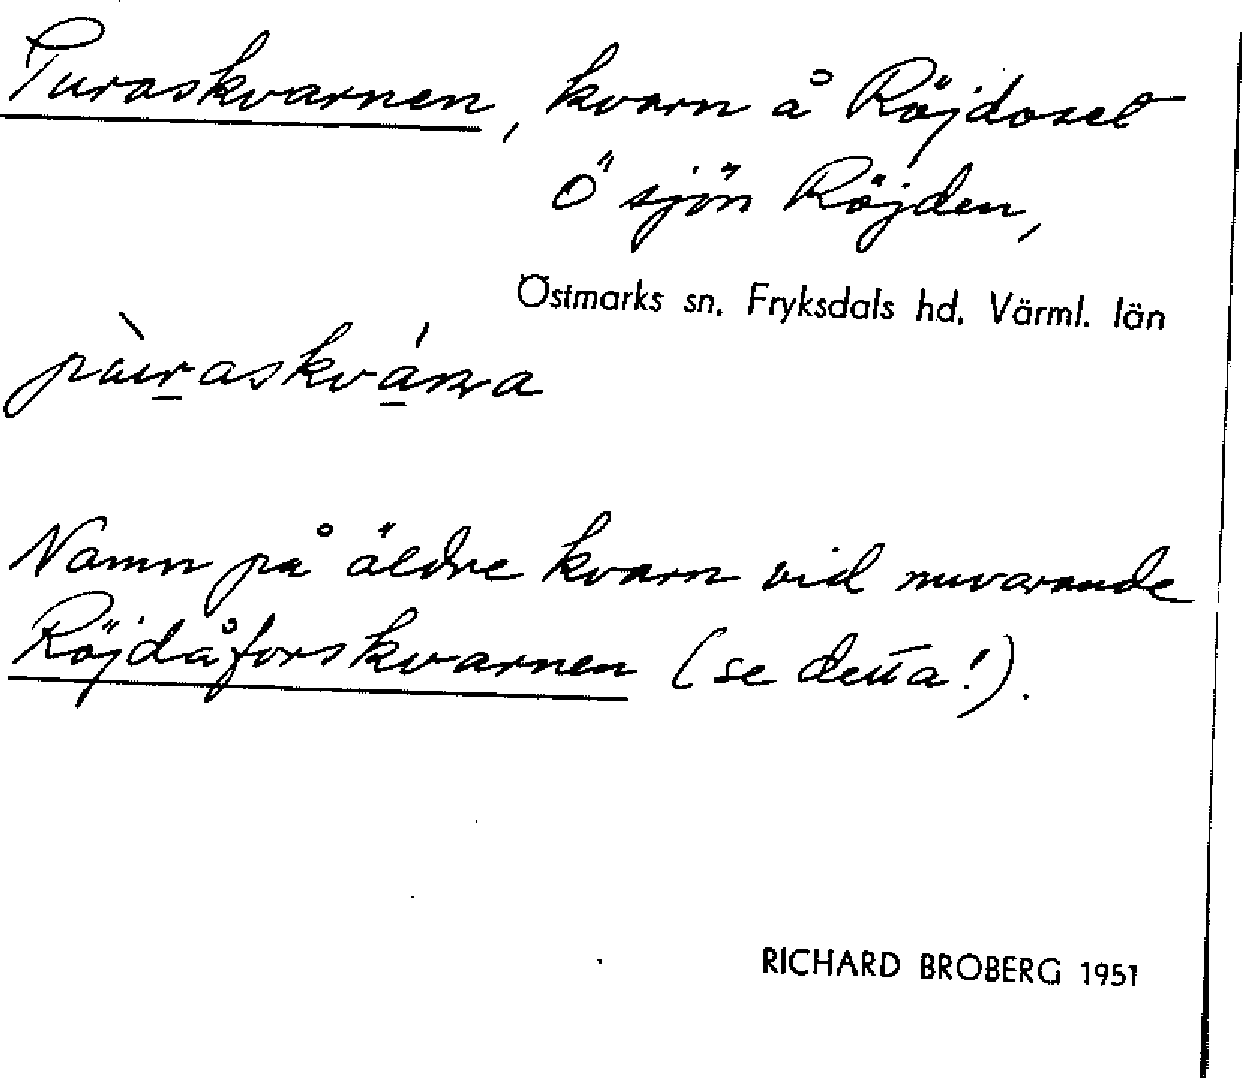 Turaskvarnen, kvarn å Röjdoset
Ö sjön Röjden,
Östmarks sn. Fryksdals hd. Värml. län
Namn på äldre kvarn vid nuvarande
Röjdåforskvarnen (se detta!).
RICHARD BROBERG 1951